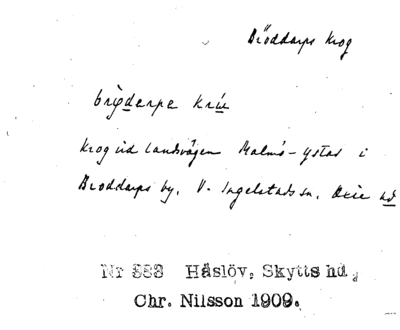 Bröddarps Krog
brøderpa krú
Krog vid landsvägen Malmö-Ystad i
Broddarps by, V. Ingelstads sn, Oxie hd
Nr 888 Håslöv, Skytts hd,
Chr. Nilsson 1909.